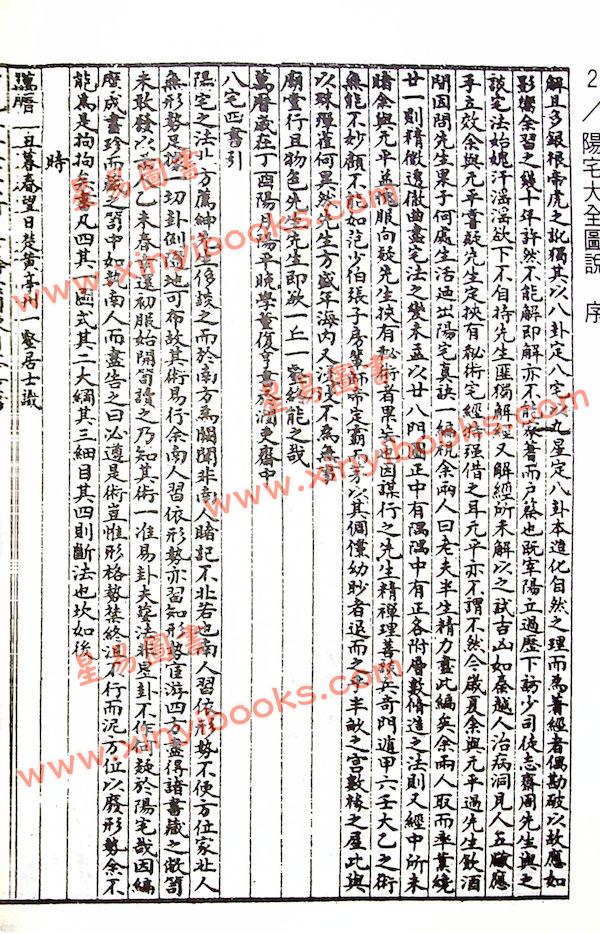 2／陽宅大全圖說　序
解且多銀根帝虎之訛獨其以八卦定八宅以九星定八卦本造化自然之理而為著經者偶勘破以故應如
影響余習之幾十年許然不能解即解亦不能著而戶蔡也既宰陽立過歷下訪少司徒志齋周先生與之
談宅法始媿汗滛滛欲下不自持先生匪獨解經又解經所未解以之試吉凶如秦越人治病洞見人五臟應
手立效余與元平喜疑先生定挾有秘術宅經特强借之耳元平亦不謂不然今歲夏余與元平過先生飲酒
間因問先生果于何處生活迺出陽宅真訣一編視余兩人曰老夫半生精力盡此編矣余兩人取而卒業繞
廿一則精微透徹曲盡宅法之變末益以廿八門圖正中有隅隅中有正各附層數脩造之法則又經中所未
睹余與元平益服向疑先生挾有秘術者果矣也因謀行之先生精禪理善談兵奇門遁甲六壬大乙之術
無能不妙顧不能如范少伯張子房輩師帝定霸不芳以其倜儻幼眇者退而之半畝之宮數椽之屋此與
以珠彈雀何異然先生方盛年海內又不為無事
廟堂行且物色先生先生即欲一丘一壑能之哉
萬曆歲在丁酉陽月陽平晚學董復亨書於潤吏齋中
八宅四書引
陽宅之法北方薦紳先生侈談之而於南方為闊闊非南人睹記不北若也南人習依形勢不使方位家北人
無形勢足儗一切卦倒隨地可布故其術易行余南人習依形勢亦習知形勢歷游四方盡得諸書藏之敝笥
未敢發以示人乙未春請還初服始開笥讀之乃知其術一准易卦夫葬法非是卦不作何疑於陽宅哉因編
歷成書珍而藏之笥中如執南人而盡告之曰必遵是術豈惟形格勢禁終沮不行而泥方位以廢形勢余不
能為是拘拘矣書凡四其一圖式其二大綱其三細目其四則斷法也坎如後
時
萬曆　丑暮春望日楚黃亭州一壑居士識
星易圖書
www.xinyibooks.com
星易圖書
www.xinyibooks.com
星易圖書
www.xinyibooks.com
星易圖書
www.xinyibooks.com